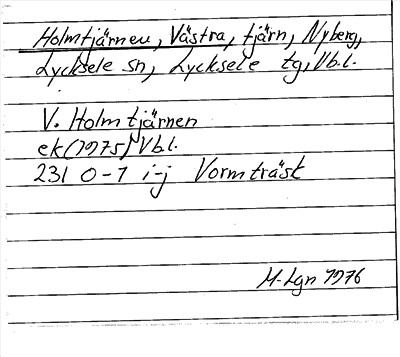 Holmtjärnen, Västra, tjärn, Nyberg,
Lycksele sn, Lycksele tg, Vb.l.
V. Holmtjärnen
ek (1975) Vbl.
23I 0-1 i-j Vormträsk
M-Lgn 1976